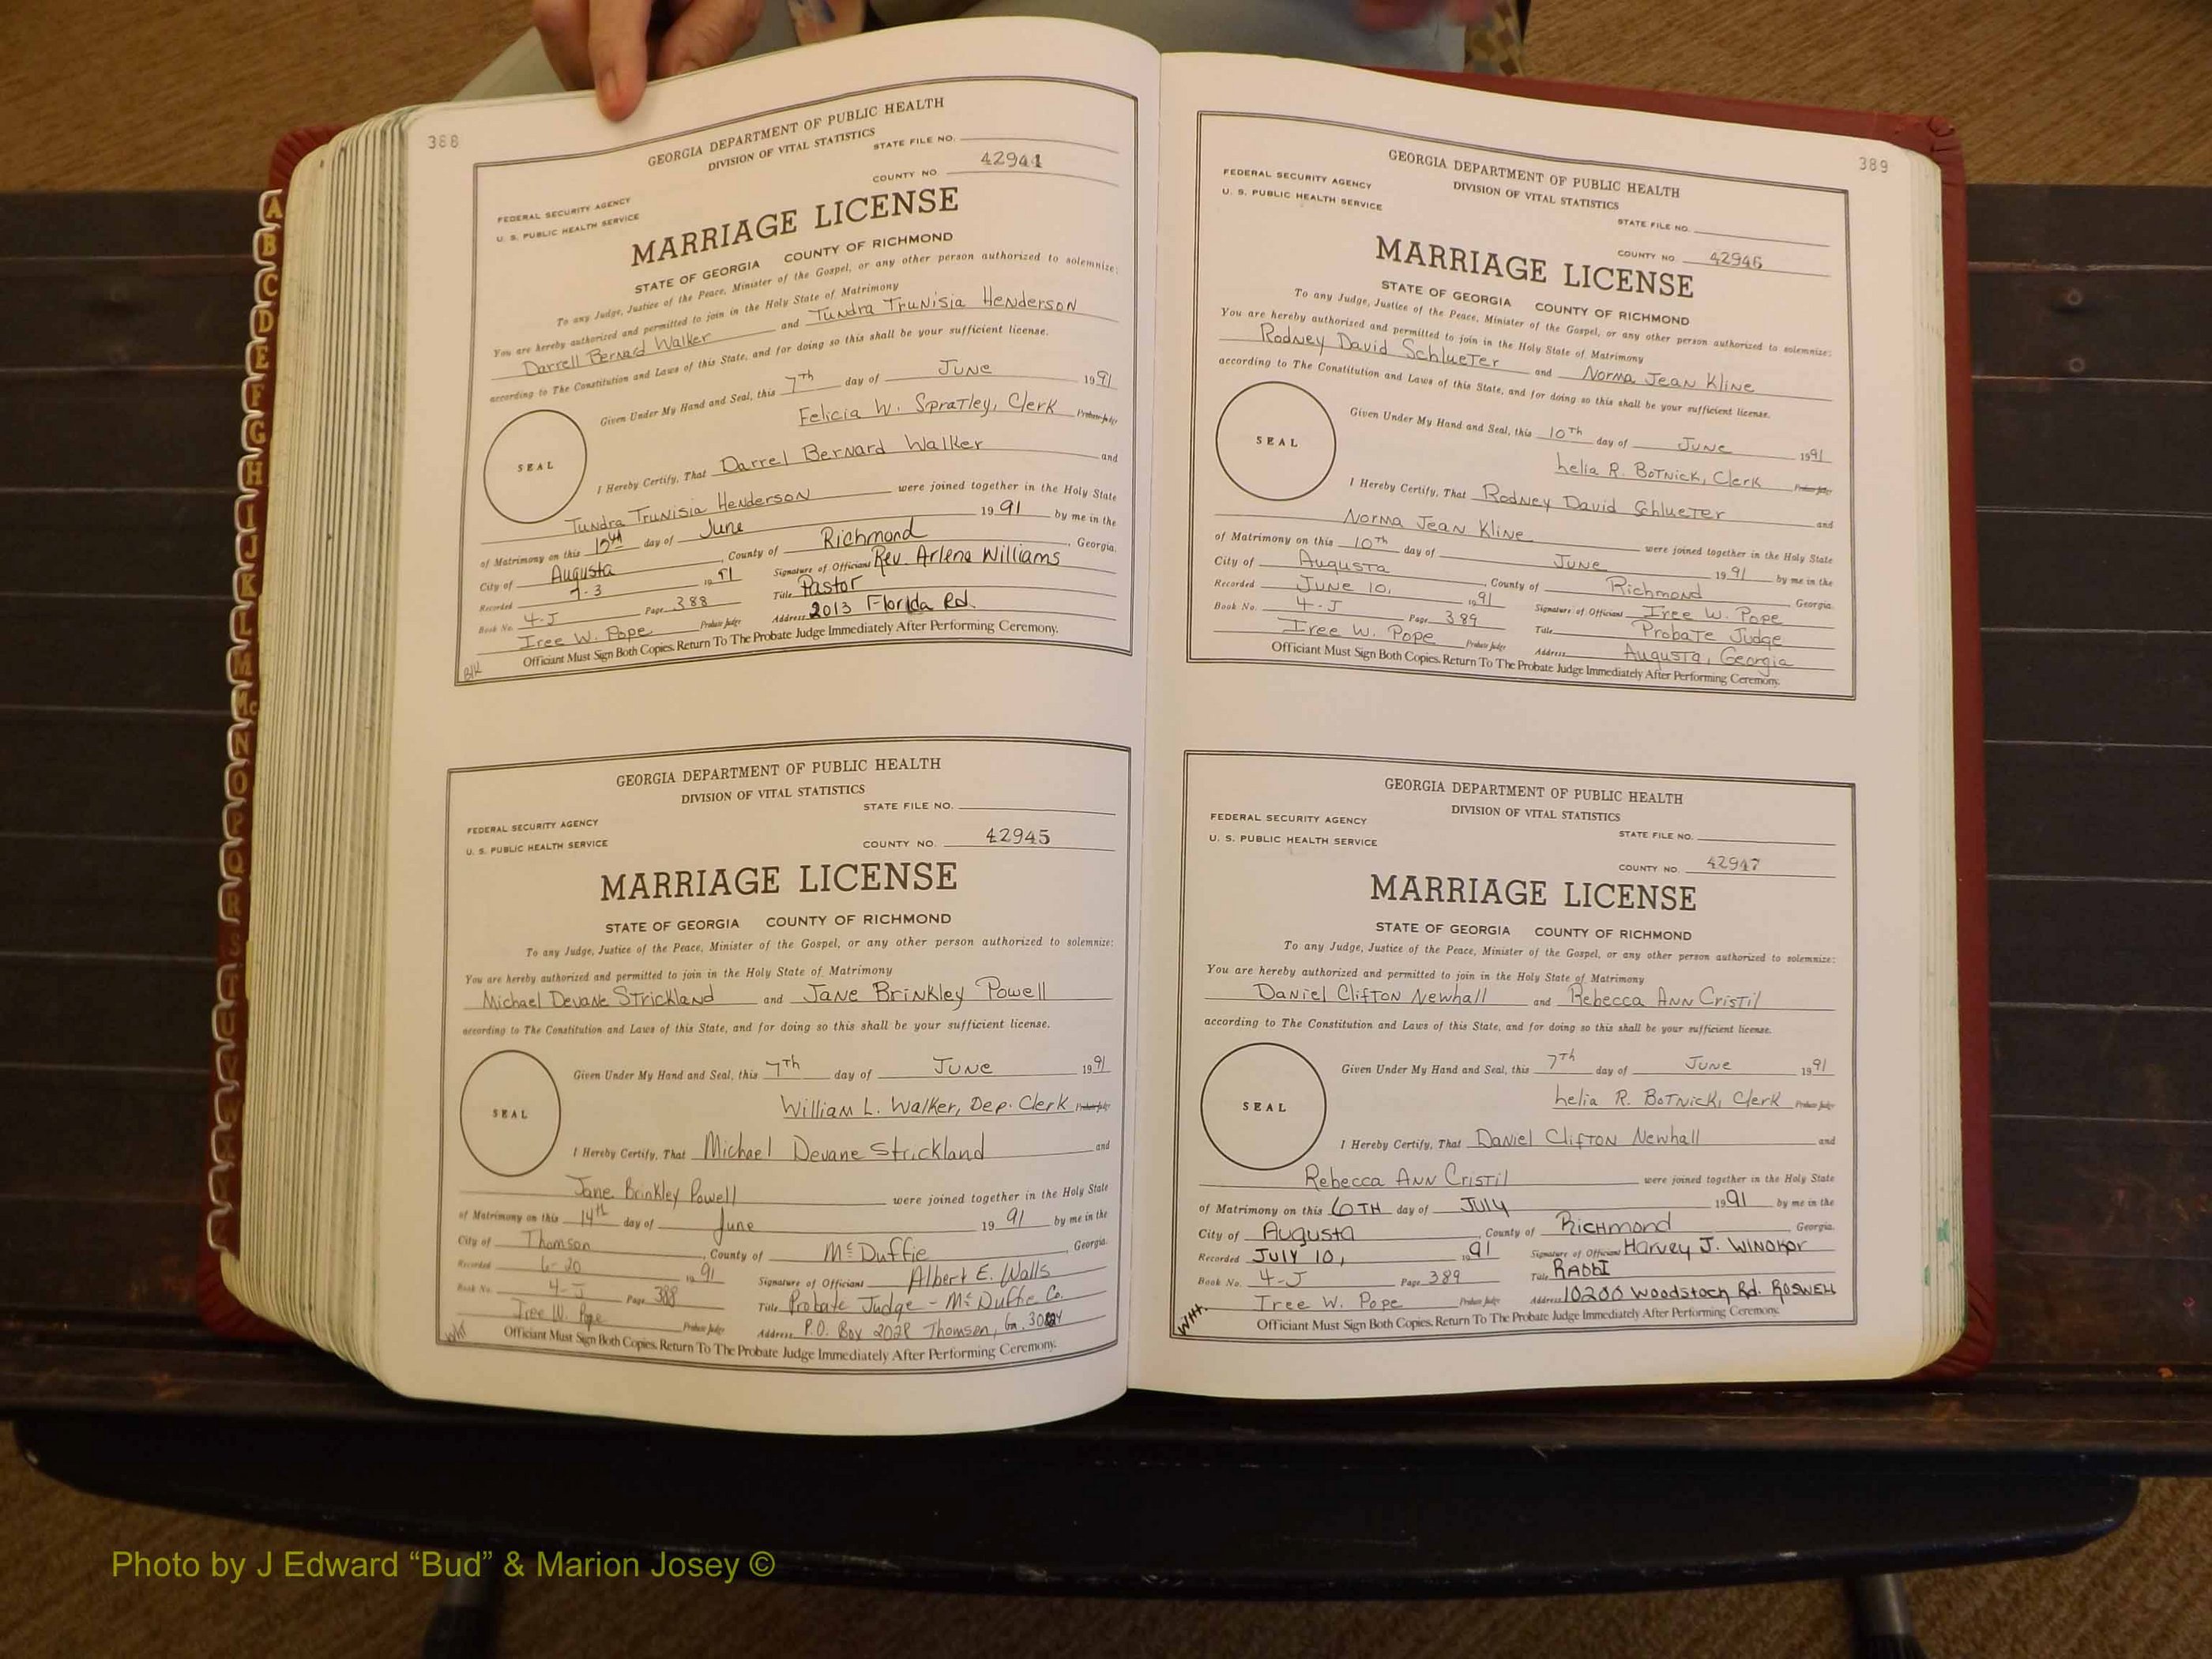 388
GEORGIA DEPARTMENT OF PUBLIC HEALTH
DIVISION OF VITAL STATISTICS
STATE FILE NO.
FEDERAL SECURITY AGENCY
U. S. PUBLIC HEALTH SERVICE
COUNTY NO. 42944
MARRIAGE LICENSE
STATE OF GEORGIA COUNTY OF RICHMOND
To any Judge, Justice of the Peace, Minister of the Gospel, or any other person authorized to solemnize:
You are hereby authorized and permitted to join in the Holy State of Matrimony
Darrell Bernard Walker and Tundra Trunisia Henderson
according to The Constitution and Laws of this State, and for doing so this shall be your sufficient license.
Given Under My Hand and Seal, this 7Th day of June 1991
Felicia W. Spratley, Clerk Probate Judge
SEAL
I Hereby Certify, That Darrel Bernard Walker and
Tundra Trunisia Henderson were joined together in the Holy State
of Matrimony on this day of June 1991 by me in the
City of Augusta, County of Richmond, Georgia.
Recorded 7-3 1991 Signature of Officiant Rev. Arlene Williams
Book No. 4-J Page 388 Title Pastor
Iree W. Pope Probate Judge Address 2013 Florida Rd.
Officiant Must Sign Both Copies. Return To The Probate Judge Immediately After Performing Ceremony.
Blk
GEORGIA DEPARTMENT OF PUBLIC HEALTH
DIVISION OF VITAL STATISTICS
STATE FILE NO.
FEDERAL SECURITY AGENCY
U. S. PUBLIC HEALTH SERVICE
COUNTY NO. 42945
MARRIAGE LICENSE
STATE OF GEORGIA COUNTY OF RICHMOND
To any Judge, Justice of the Peace, Minister of the Gospel, or any other person authorized to solemnize:
You are hereby authorized and permitted to join in the Holy State of Matrimony
Michael Devane Strickland and Jane Brinkley Powell
according to The Constitution and Laws of this State, and for doing so this shall be your sufficient license.
Given Under My Hand and Seal, this 7Th day of June 1991
William L. Walker, Dep. Clerk Probate Judge
SEAL
I Hereby Certify, That Michael Devane Strickland and
Jane Brinkley Powell were joined together in the Holy State
of Matrimony on this 14th day of June 1991 by me in the
City of Thomson, County of McDuffie, Georgia.
Recorded 6-20 1991 Signature of Officiant Albert E. Walls
Book No. 4-J Page 388 Title Probate Judge - McDuffie Co.
Iree W. Pope Probate Judge Address P.O. Box 2028 Thomson, Ga.
Officiant Must Sign Both Copies. Return To The Probate Judge Immediately After Performing Ceremony.
Wht
389
GEORGIA DEPARTMENT OF PUBLIC HEALTH
DIVISION OF VITAL STATISTICS
FEDERAL SECURITY AGENCY
U. S. PUBLIC HEALTH SERVICE
STATE FILE NO.
COUNTY NO. 42946
MARRIAGE LICENSE
STATE OF GEORGIA COUNTY OF RICHMOND
To any Judge, Justice of the Peace, Minister of the Gospel, or any other person authorized to solemnize:
You are hereby authorized and permitted to join in the Holy State of Matrimony
Rodney David Schlueter and Norma Jean Kline
according to The Constitution and Laws of this State, and for doing so this shall be your sufficient license.
Given Under My Hand and Seal, this 10Th day of June 1991
Lelia R. Botnick, Clerk Probate Judge
SEAL
I Hereby Certify, That Rodney David Schlueter and
Norma Jean Kline were joined together in the Holy State
of Matrimony on this 10Th day of June 1991 by me in the
City of Augusta, County of Richmond Georgia.
Recorded June 10, 1991 Signature of Officiant Iree W. Pope
Book No. 4-J Page 389 Title Probate Judge
Iree W. Pope Probate Judge Address Augusta, Georgia
Officiant Must Sign Both Copies. Return To The Probate Judge Immediately After Performing Ceremony.
GEORGIA DEPARTMENT OF PUBLIC HEALTH
DIVISION OF VITAL STATISTICS
FEDERAL SECURITY AGENCY
U. S. PUBLIC HEALTH SERVICE
STATE FILE NO.
COUNTY NO. 42947
MARRIAGE LICENSE
STATE OF GEORGIA COUNTY OF RICHMOND
To any Judge, Justice of the Peace, Minister of the Gospel, or any other person authorized to solemnize:
You are hereby authorized and permitted to join in the Holy State of Matrimony
Daniel Clifton Newhall and Rebecca Ann Cristil
according to The Constitution and Laws of this State, and for doing so this shall be your sufficient license.
Given Under My Hand and Seal, this 7Th day of June 1991
Lelia R. Botnick, Clerk Probate Judge
SEAL
I Hereby Certify, That Daniel Clifton Newhall and
Rebecca Ann Cristil were joined together in the Holy State
of Matrimony on this 6TH day of July 1991 by me in the
City of Augusta, County of Richmond Georgia.
Recorded July 10, 1991 Signature of Officiant Harvey J. Winokor
Book No. 4-J Page 389 Title Rabbi
Iree W. Pope Probate Judge Address 10200 Woodstock Rd. Roswell
Officiant Must Sign Both Copies. Return To The Probate Judge Immediately After Performing Ceremony.
WHT.
A
B
C
D
E
F
G
H
I
J
K
L
M
Mc
N
O
P
Q
R
S
T
U
V
W
Photo by J Edward “Bud” & Marion Josey ©